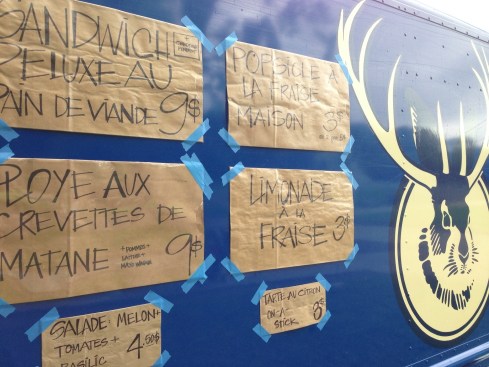 SANDWICH
DELUXE AU
PAIN DE VIANDE 9$
POPSICLE À
LA FRAISE
MAISON 3$
PLOYE AUX
CREVETTES DE
MATANE + POMMES + 9$
LIMONADE
À LA
FRAISE 3$
TARTE AU CITRON
ON-A-
STICK 3$
SALADE MELON +
TOMATES + 4.50$
BASILIC